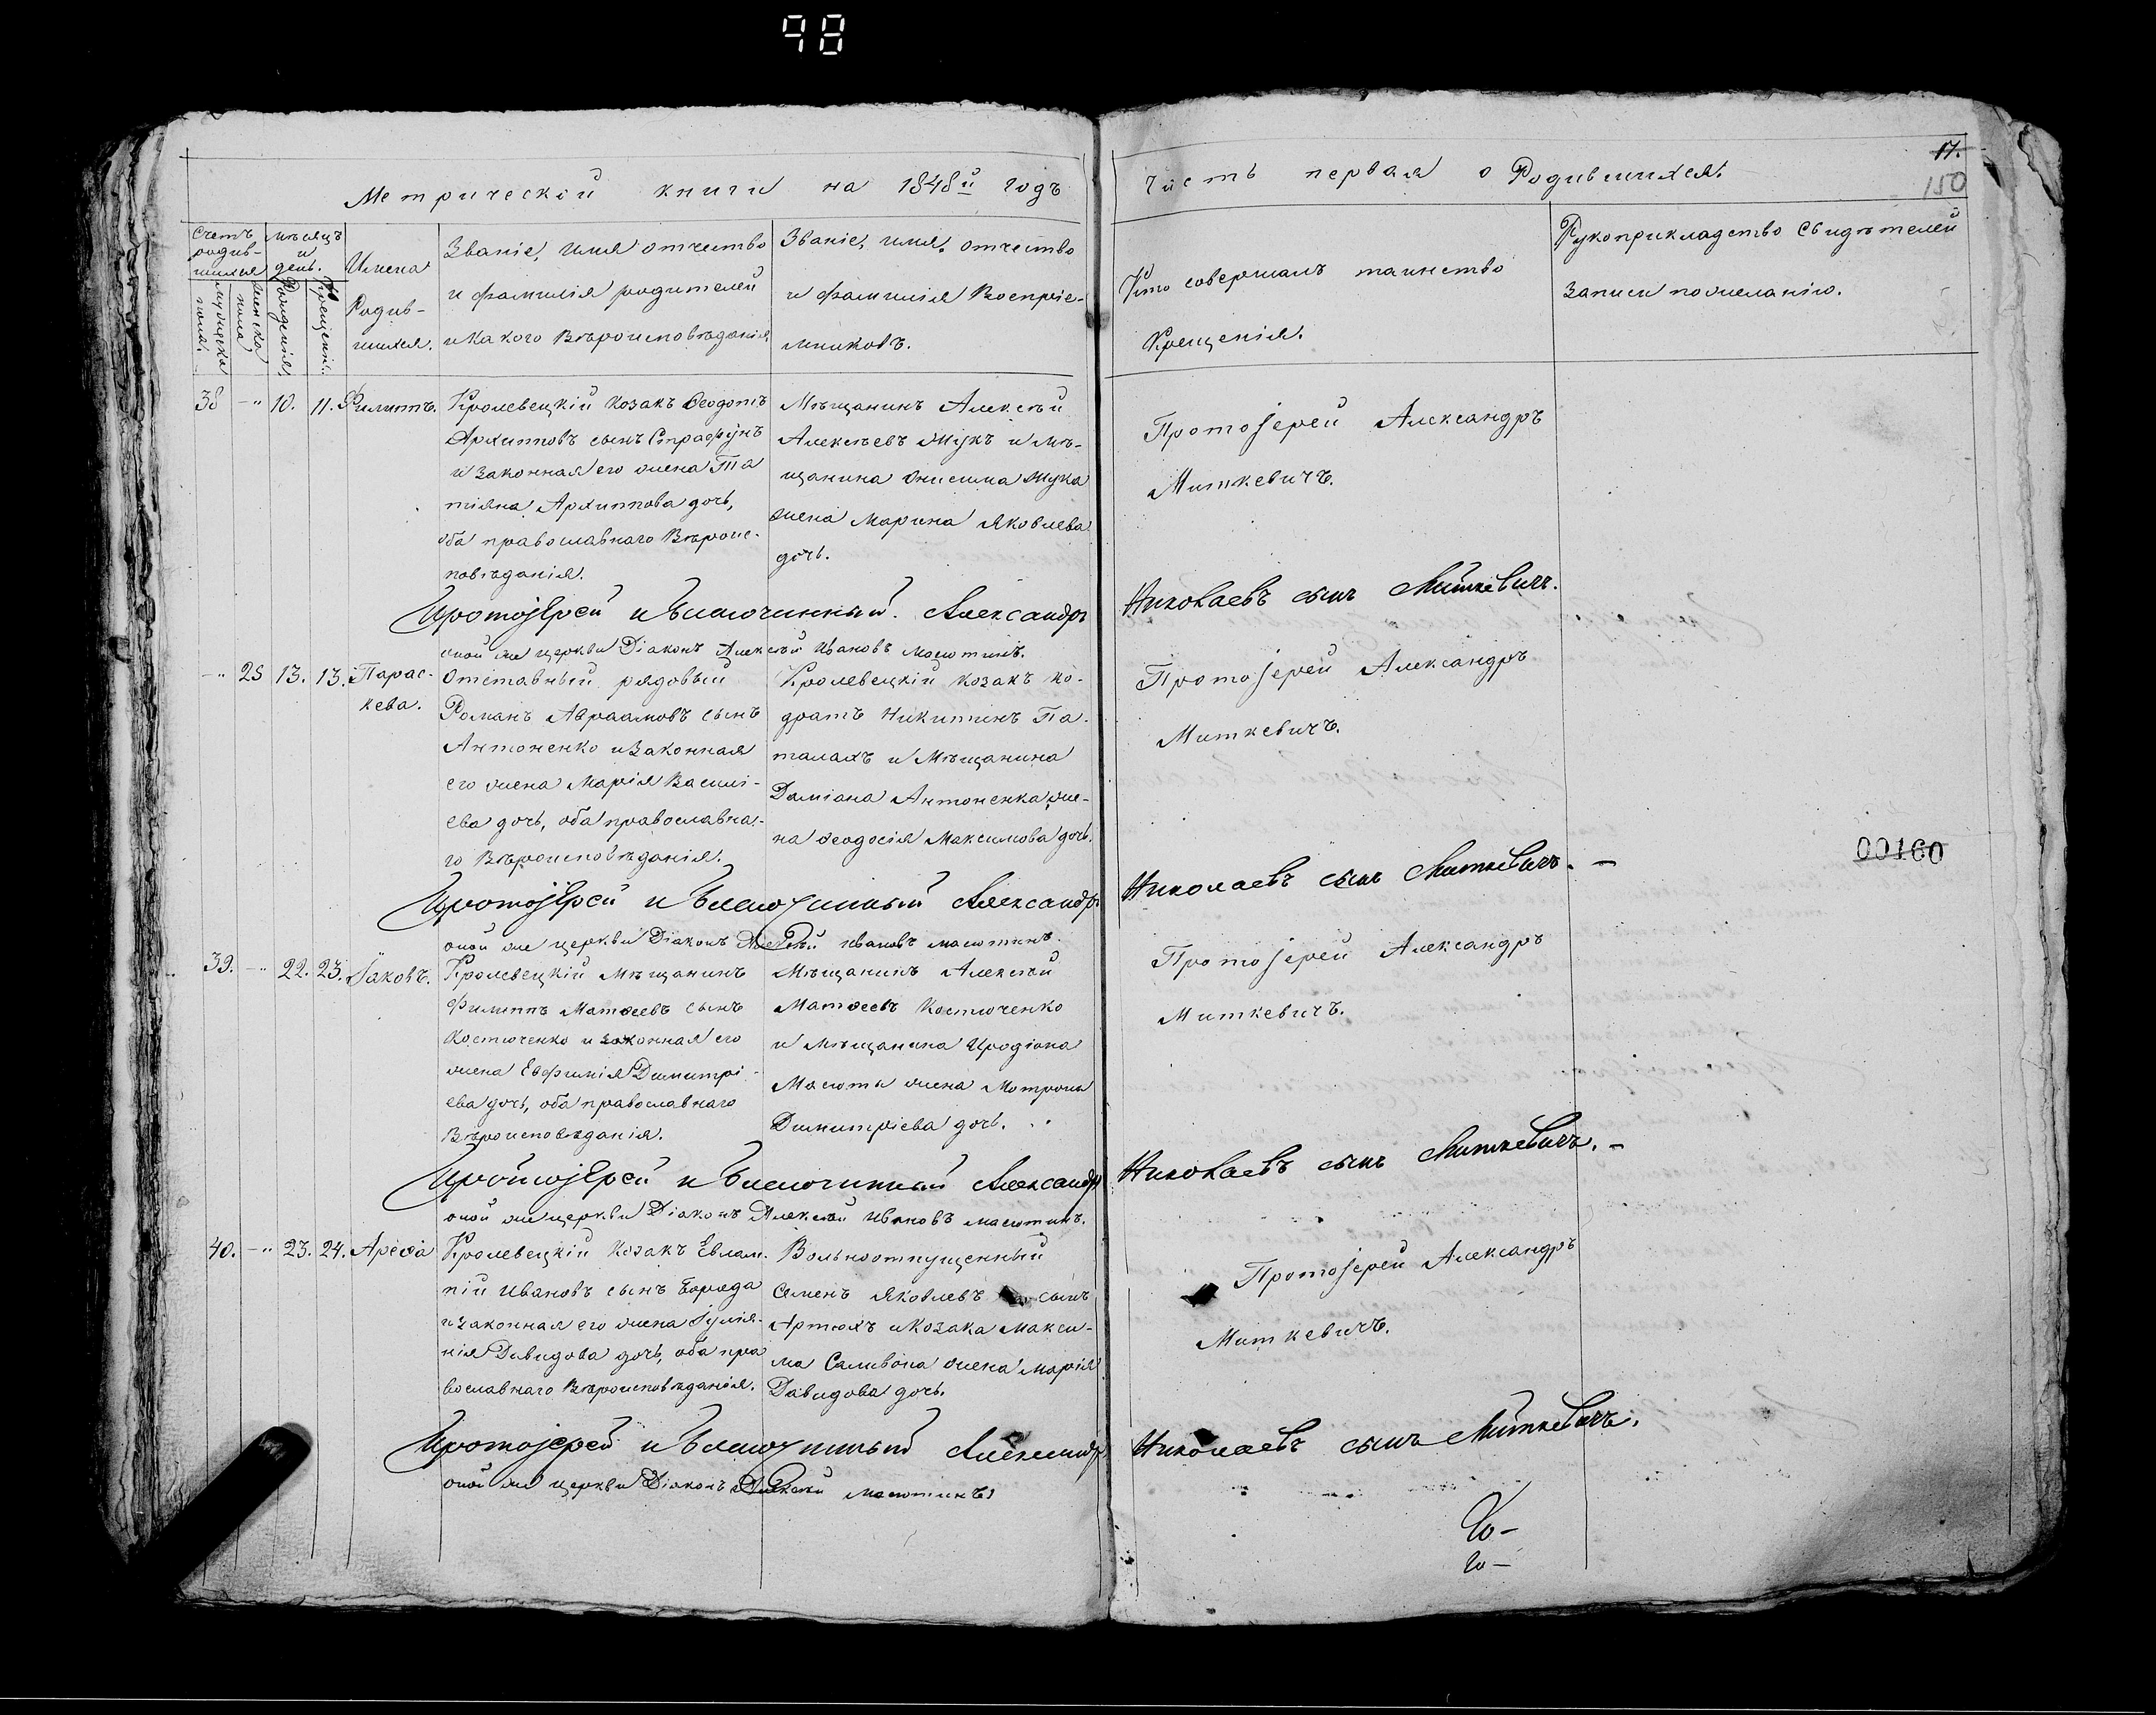 98
Метрической книги на 1848й годъ
часть первая о Родившихся.
17.
150
Счетъ родив-шихся
мѣсяцъ и день.
Имена Родив-шихся.
Званіе, имя отчество и фамилія родителей и какого Вѣроисповѣданія
Званіе, имя, отчество и фамилія Воспріе-мниковъ.
Кто совершалъ таинство Крещенія.
Рукоприкладство свидѣтелей записи по желанію.
мужеска пола.
женска пола
Рожденія.
Крещенія.
38 -"- 10. 11. Филиппъ.
Кролевецкій козакъ Ѳеодотъ
Архипповъ сынъ Страфунъ
и законная его жена Та
тіяна Архиппова дочь,
оба православнаго Вѣроис-
повѣданія.
Мѣщанинъ Алексѣй
Алексѣевъ Жукъ и мѣ-
щанина Онисима Жука
жена Марина Яковлева
дочь.
Протоіерей Александръ
Миткевичъ.
Протоіерей и Благочинный Александръ Николаевъ сынъ Миткевичъ.
оной же церкви Діаконъ Алексѣй Ивановъ Масютинъ.
-"- 25 13. 13. Парас-
кева.
Отставный рядовый
Романъ Авраамовъ сынъ
Антоненко и законная
его жена Марія Василі-
ева дочь, оба православна-
го Вѣроисповѣданія.
Кролевецкій козакъ Ко-
дратъ Никитинъ Па-
талахъ и Мѣщанина
Даміана Антоненка же-
на Ѳеодосія Максимова дочь.
Протоіерей Александръ
Миткевичъ.
00160
Протоіерей и Благочинный Александръ Николаевъ сынъ Миткевичъ. —
оной же церкви Діаконъ Алексѣй Ивановъ Масютинъ.
39. -"- 22. 23. Іаковъ.
Кролевецкій Мѣщанинъ
Филиппъ Матѳеевъ сынъ
Костюченко и законная его
жена Евфимія Димитрі-
ева дочь, оба православнаго
Вѣроисповѣданія.
Мѣщанинъ Алексѣй
Матѳеевъ Костюченко
и мѣщанина Иродіона
Масюты жена Мотрона
Димитріева дочь.
Протоіерей Александръ
Миткевичъ.
Протоіерей и Благочинный Александръ Николаевъ сынъ Миткевичъ. —
оной же церкви Діаконъ Алексѣй Ивановъ Масютинъ.
40. -"- 23. 24. Арефа
Кролевецкій козакъ Евлам-
пій Ивановъ сынъ Борода
и законная его жена Іуліа-
нія Давидова дочь, оба пра
вославнаго Вѣроисповѣданія.
Вольноотпущенный
Семенъ Яковлевъ сынъ
Артюхъ и козака Макси-
ма Саливона жена Марія
Давидова дочь.
Протоіерей Александръ
Миткевичъ.
Протоіерей и Благочинный Александръ Николаевъ сынъ Миткевичъ.
оной же церкви Діаконъ Алексѣй Масютинъ